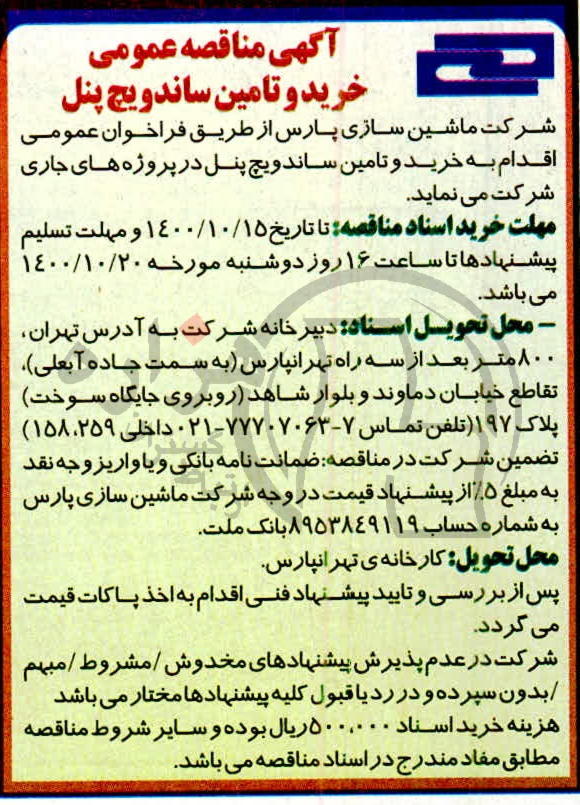 آگهی مناقصه عمومی
خرید و تامین ساندویچ پنل
شرکت ماشین سازی پارس از طریق فراخوان عمومی
اقدام به خرید و تامین ساندویچ پنل در پروژه های جاری
شرکت می نماید.
مهلت خرید اسناد مناقصه: تا تاریخ ۱۴۰۰/۱۰/۱۵ و مهلت تسلیم
پیشنهادها تا ساعت ۱۶ روز دوشنبه مورخه ۱۴۰۰/۱۰/۲۰
می باشد.
– محل تحویل اسناد: دبیرخانه شرکت به آدرس تهران،
۸۰۰ متر بعد از سه راه تهرانپارس (به سمت جاده آبعلی)،
تقاطع خیابان دماوند و بلوار شاهد (روبروی جایگاه سوخت)
پلاک ۱۹۷ (تلفن تماس ۷-۷۷۷۰۷۰۶۳-۰۲۱ داخلی ۱۵۸،۲۵۹)
تضمین شرکت در مناقصه: ضمانت نامه بانکی و یا واریز وجه نقد
به مبلغ ۵٪ از پیشنهاد قیمت در وجه شرکت ماشین سازی پارس
به شماره حساب ۸۹۵۳۸۴۹۱۱۹ بانک ملت.
محل تحویل: کارخانه ی تهرانپارس.
پس از بررسی و تایید پیشنهاد فنی اقدام به اخذ پاکات قیمت
می گردد.
شرکت در عدم پذیرش پیشنهادهای مخدوش / مشروط / مبهم
/ بدون سپرده و در رد یا قبول کلیه پیشنهادها مختار می باشد
هزینه خرید اسناد ۵۰۰،۰۰۰ ریال بوده و سایر شروط مناقصه
مطابق مفاد مندرج در اسناد مناقصه می باشد.